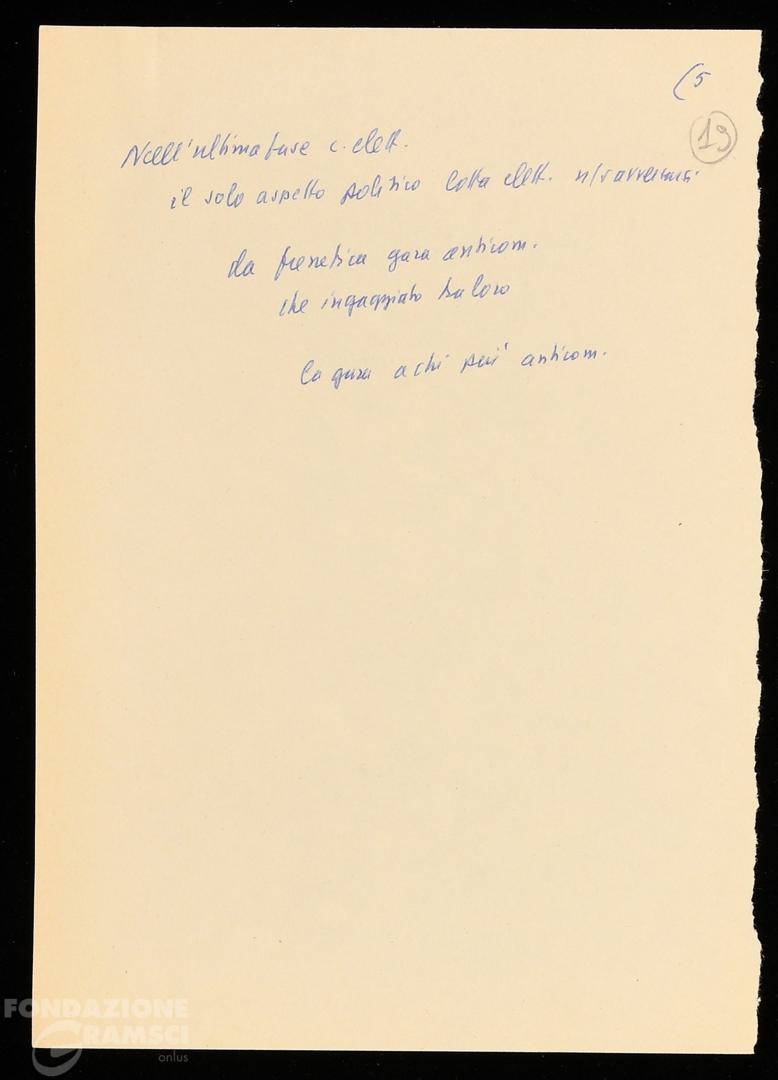 (5
19
Nell'ultima fase c. elett.
il solo aspetto politico lotta elett. n/s avversari
la frenetica gara anticom.
che ingaggiato tra loro
la gara a chi più anticom.
FONDAZIONE
GRAMSCI
onlus